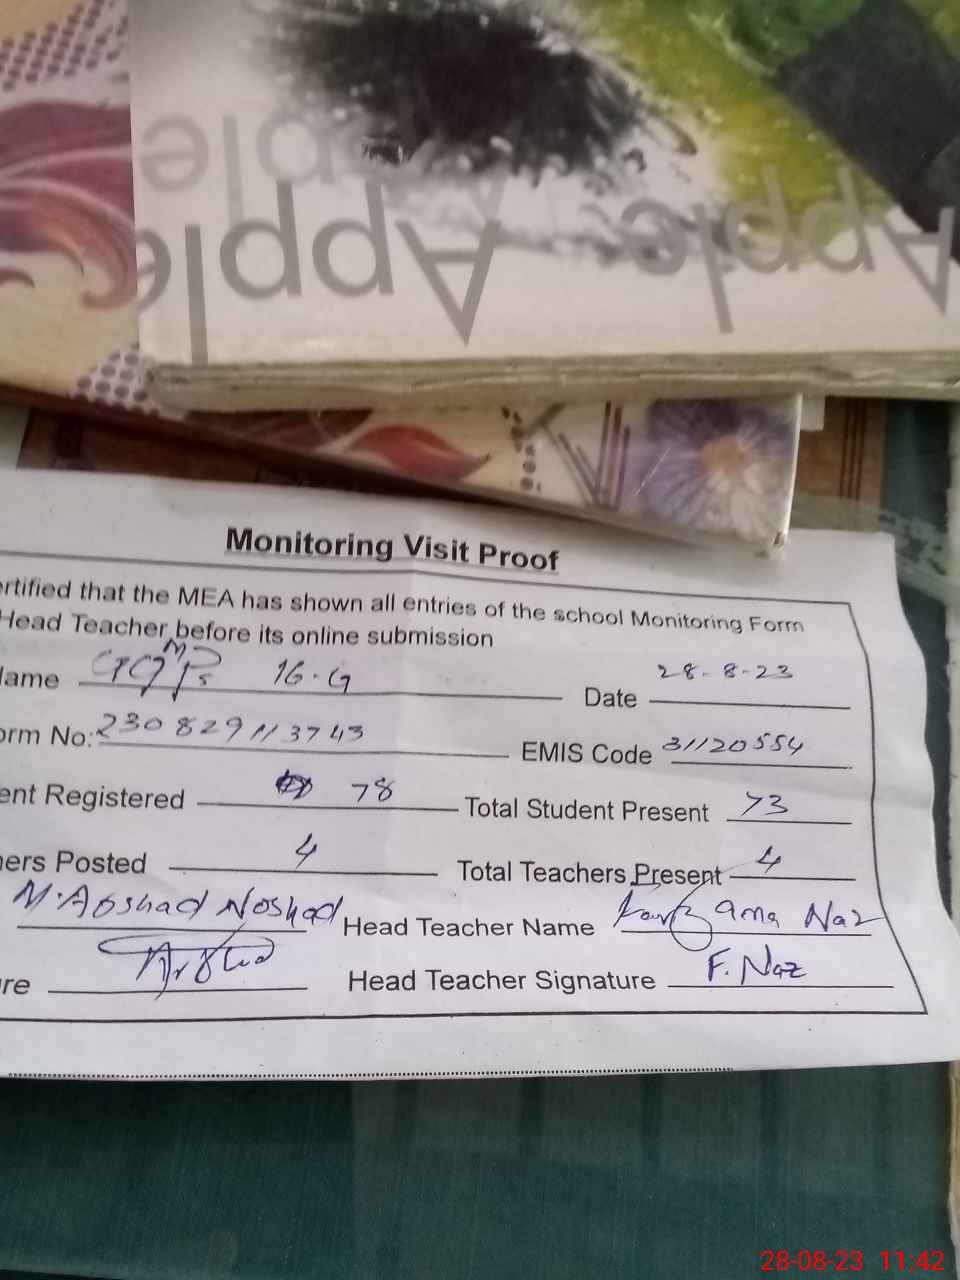 Apple Apple
Apple Apple
Monitoring Visit Proof
ertified that the MEA has shown all entries of the school Monitoring Form
Head Teacher before its online submission
ame GGMPS 16-G Date 28-8-23
orm No: 230829113743 EMIS Code 31120554
ent Registered 78 Total Student Present 73
ers Posted 4 Total Teachers Present 4
M. Arshad Noshad Head Teacher Name Naz
re Arshad Head Teacher Signature F. Naz
28-08-23 11:42